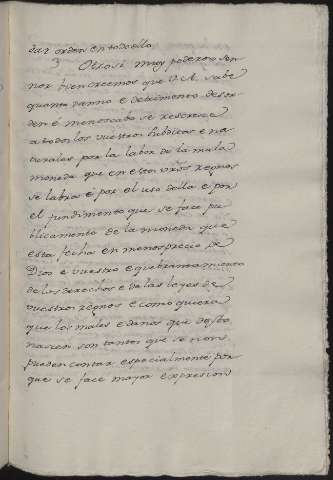 dar orden en todo ello
3 Otrosi muy poderoso Sen
nor bien creemos que V. A. sabe
quanto danno e detrimento desor
den é menoscabo se recrece
a todos los vuestros subditos e na
turales por la labor de la mala
moneda que en estos vros Regnos
se labra é por el uso della e por
el fundimento que se face pu
blicamente de la moneda que
esta fecha en menosprecio de
Dios e vuestro e quebrantamiento
de los derechos e de las leyes de
vuestros regnos e como quiera
que los males e danos que desto
nascen son tantos que se non
pueden contar especialmente por
que se face mayor expresion